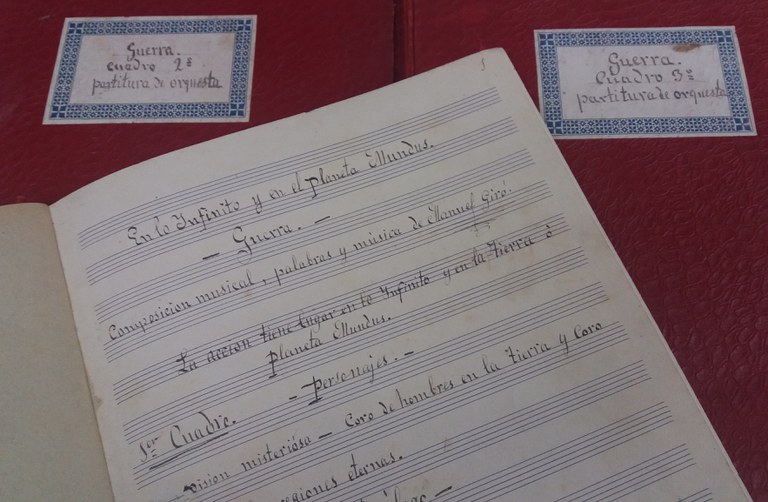 Guerra.
cuadro 2º
partitura de orquesta
Guerra.
Cuadro 3º
partitura de orquesta
1
En lo Infinito y en el planeta Mundus.
— Guerra. —
Composicion musical, palabras y música de Manuel Giró.
La accion tiene lugar en lo Infinito y en la tierra ò
planeta Mundus.
- Personajes. -
1er Cuadro.
vision misteriósa — Coro de hombres en la tierra y Coro
regiones eternas.